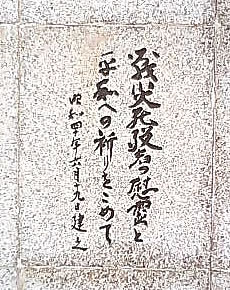 戦災死没者の慰霊と
平和への祈りをこめて
昭和四十年六月十九日建之